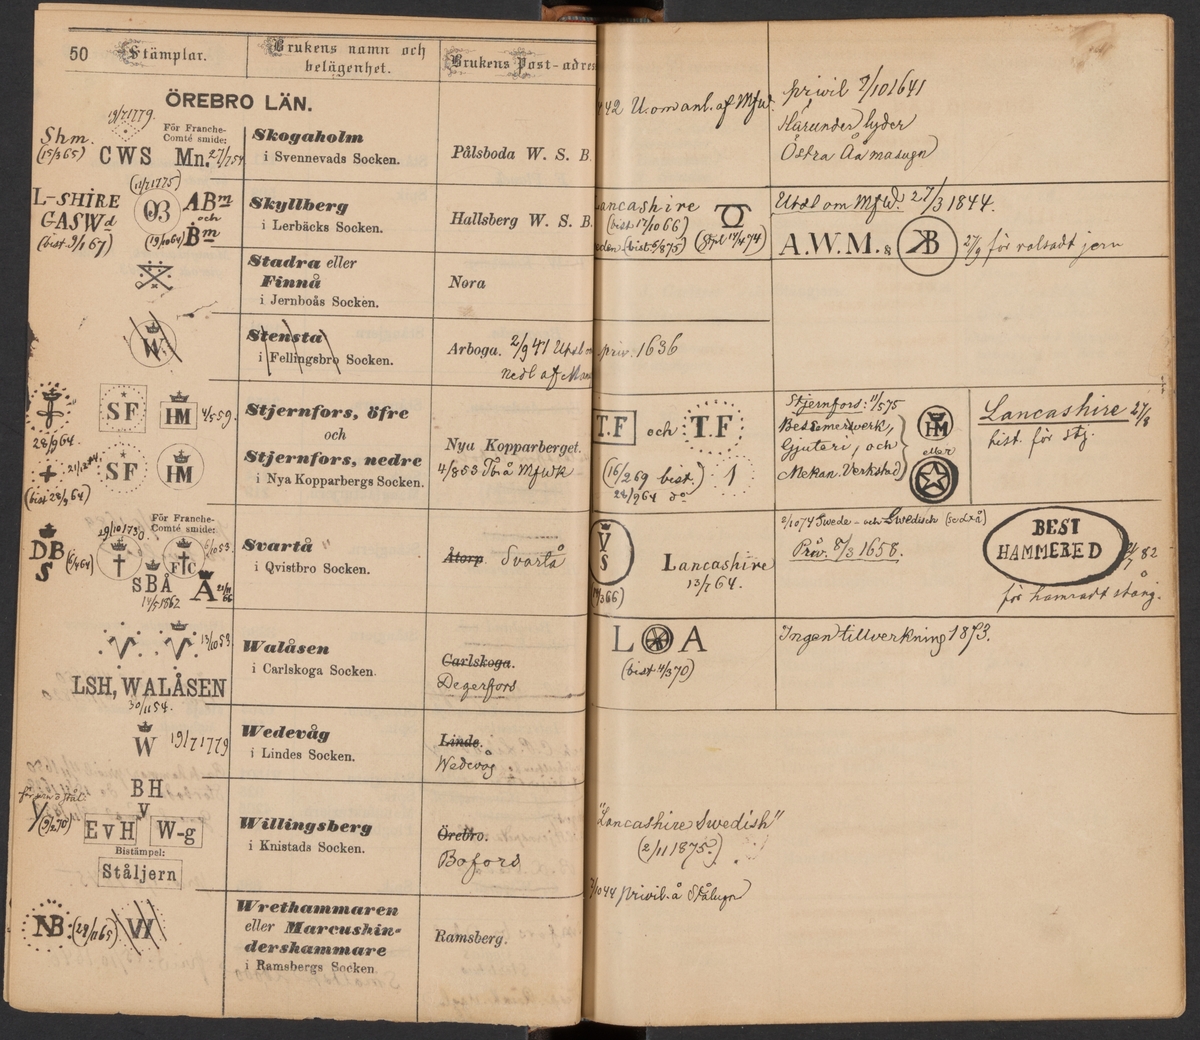 50 Stämplar.
Brukens namn och
belägenhet.
Brukens Post-adres
ÖREBRO LÄN.
19/7 1779.
Shm.
(15/365)
CWS
För Franche-
Comté smide:
Mn. 27/754
Skogaholm
i Svennevads Socken.
Pålsboda W. S. B.
42 U. om anl. af Mfw.
privil 7/10 1641
Härunder lyder
Östra Åå masugn
L-SHIRE
GASWd
(bist. 9/1 67)
(11/7 1775)
ABm
och
Bm
(19/10 64)
Skyllberg
i Lerbäcks Socken.
Hallsberg W. S. B.
Lancashire
(bist 17/10 66)
(bist. 6/875)
(Stpl 14/474)
Utsl om Mfw. 27/3 1844.
A.W.M. & KB 27/9 för valsadt jern
Stadra eller
Finnå
i Jernboås Socken.
Nora
W.
Stensta
i Fellingsbro Socken.
Arboga. 2/9 41 Utsl om
nedl af
priv: 1636
SF
HM
4/5 59.
28/9 64.
Stjernfors, öfre
och
Stjernfors, nedre
i Nya Kopparbergs Socken.
SF
HM
(bist 28/9 64)
Nya Kopparberget.
4/8 53 Tbiå Mfwk
T.F och T.F
(16/2 69 bist.)
28/9 64 do
1
Stjernfors: 11/5 75
Bessemerverk,
Gjuteri, och
Mekan. Verkstad
HM
eller
Lancashire 27/8
bist. för stg.
För Franche-
Comté smide:
29/10 730.
DB
S
(6/4 64)
F C
6/10 53.
SBÅ
14/5 1862
Ä
Svartå
i Qvistbro Socken.
Åtorp Svartå
V
S
(14/3 66)
Lancashire
13/7 64.
2/10 74 Swede- och Swedish
Priv. 8/3 1658.
BEST
HAMMERED
för hamradt stång.
V V
13/10 53.
LSH, WALÅSEN
30/11 54.
Walåsen
i Carlskoga Socken.
Carlskoga.
Degerfors
L A
(bist 4/3 70)
Ingen tillverkning 1873.
W
19/7 1779
Wedevåg
i Lindes Socken.
Linde.
Wedevåg
BH
V
(9/2 70)
EvH W-g
Bistämpel:
Ståljern
Willingsberg
i Knistads Socken.
Örebro.
Bofors
"Lancashire Swedish"
(2/11 1875.)
7/10 44 privil. å Stålugn
NB
(28/11 65)
W
Wrethammaren
eller Marcushin-
dershammare
i Ramsbergs Socken.
Ramsberg.